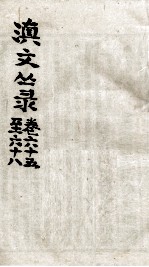 滇文丛录
卷六十五
至六十八